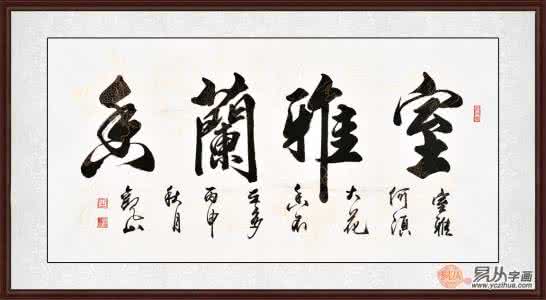 室雅蘭香
室雅
何須
大花
香不
在多
丙申
秋月
觀山
易从字画
www.yczihua.com